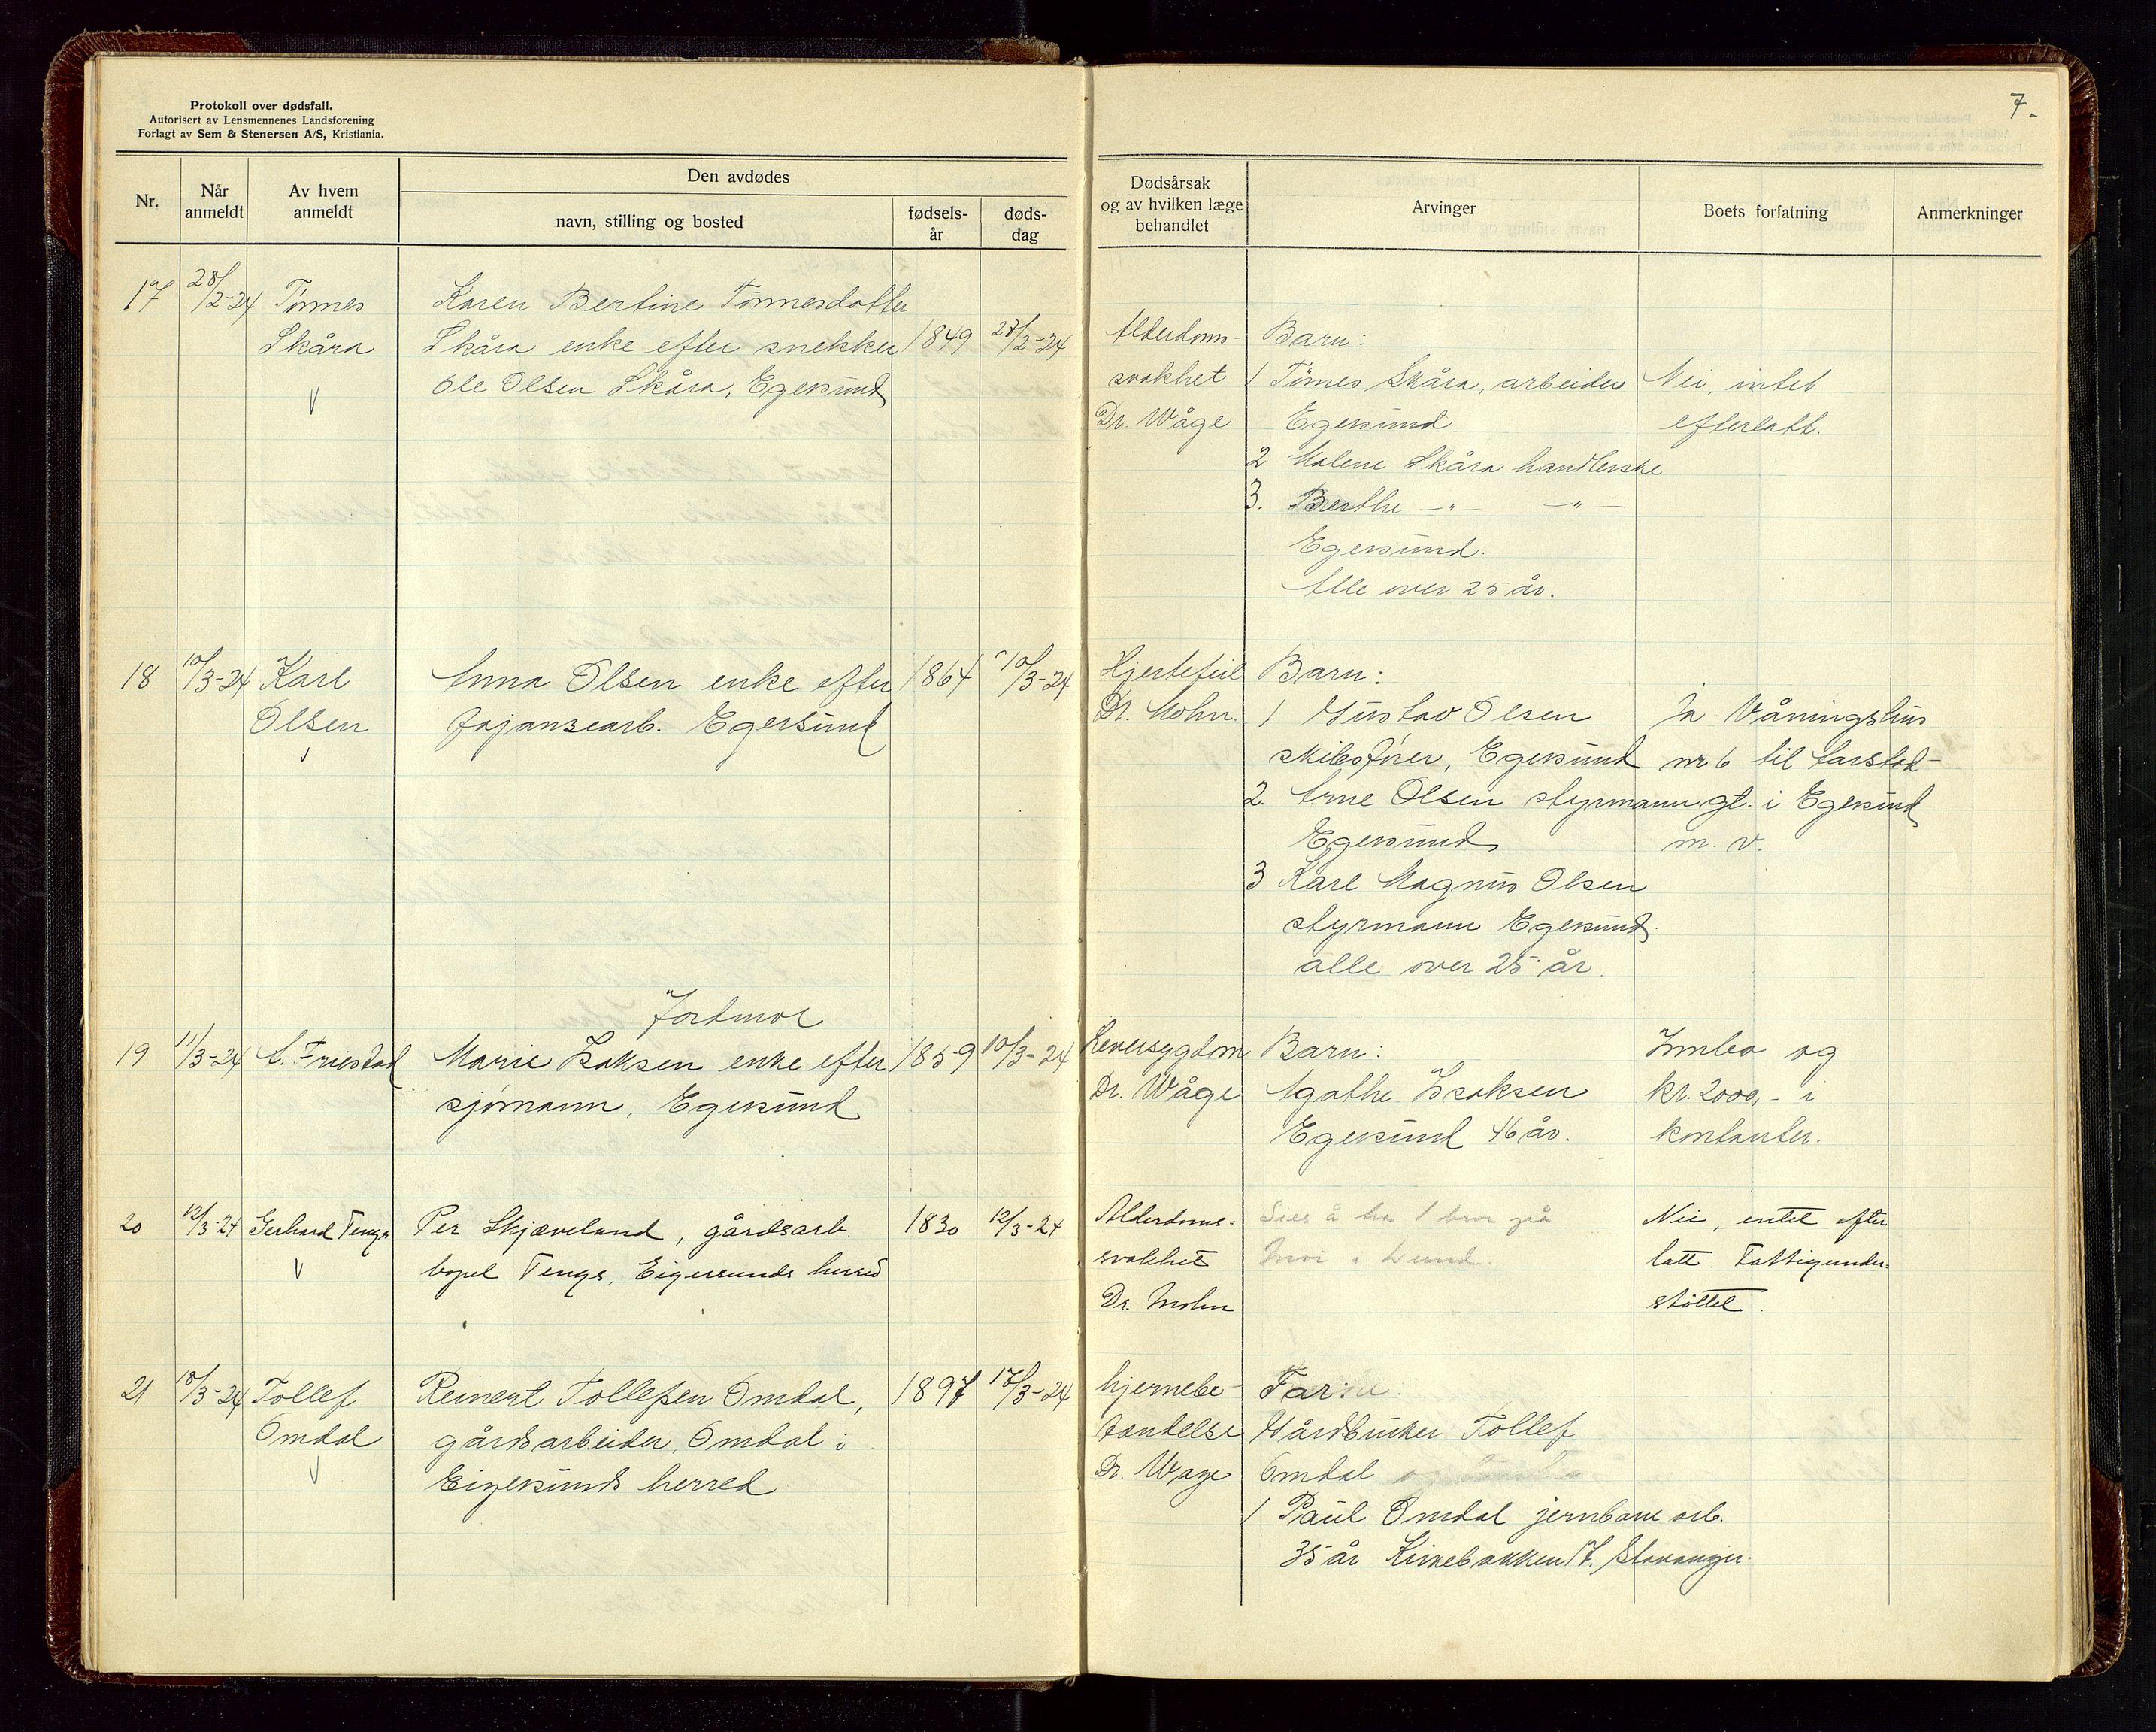 7.
Protokoll over dødsfall.
Autorisert av Lensmennenes Landsforening
Forlagt av Sem & Stenersen A/S, Kristiania.
Nr.
Når anmeldt
Av hvem anmeldt
Den avdødes
navn, stilling og bosted
fødsels-år
døds-dag
Dødsårsak og av hvilken læge behandlet
Arvinger
Boets forfatning
Anmerkninger
17 28/2-24 Tönnes
Skåra
Karen Bertine Tönnesdatter
Skåra enke efter snekker 1849 27/2-24
Ole Olsen Skåra, Egersund
Alderdoms-
svakhet
Dr. Wåge
Barn:
1 Tönnes Skåra, arbeider
Egersund
2 Malene Skåra handlerske
3. Berthe -"- -"-
Egersund.
Alle over 25 år.
Nei, intet
efterlatt.
18 10/3-24 Karl
Olsen
Anna Olsen enke efter 1864 10/3-24
fajansearb. Egersund
Hjertefeil
Dr. Mohn.
Barn:
1 Gustav Olsen
skibsfører, Egersund
2. Arne Olsen styrmann
Egersund
3 Karl Magnus Olsen
styrmann Egersund.
alle over 25 år.
Ja Våningshus
nr 6 til Aarstad-
gt. i Egersund
m. v.
Jordmor
19 11/3-24 A. Friestad
Marie Isaksen enke efter 1859 10/3-24
sjømann, Egersund
Leversygdom
Dr. Wåge
Barn:
Agathe Isaksen
Egersund 46 år.
Innbo og
kr. 2000,- i
kontanter.
20 12/3-24 Gerhard Tengs
Per Skjæveland, gårdsarb. 1830 12/3-24
bopel Tengs, Eigersunds herred
Alderdoms-
svakhet
Dr. Mohn
Sies å ha 1 bror på
Moi i Lund.
Nei, intet efter
latt. Fattigunder-
støttet.
21 18/3-24 Tollef
Omdal
Reinert Tollefsen Omdal, 1897 17/3-24
gårdsarbeider, Omdal i
Eigersunds herred
hjernebe-
tendelse
Dr. Wåge
Far:
Gårdbruker Tollef
Omdal
1 Paul Omdal jernbane arb.
35 år Kirkebakken 17. Stavanger.